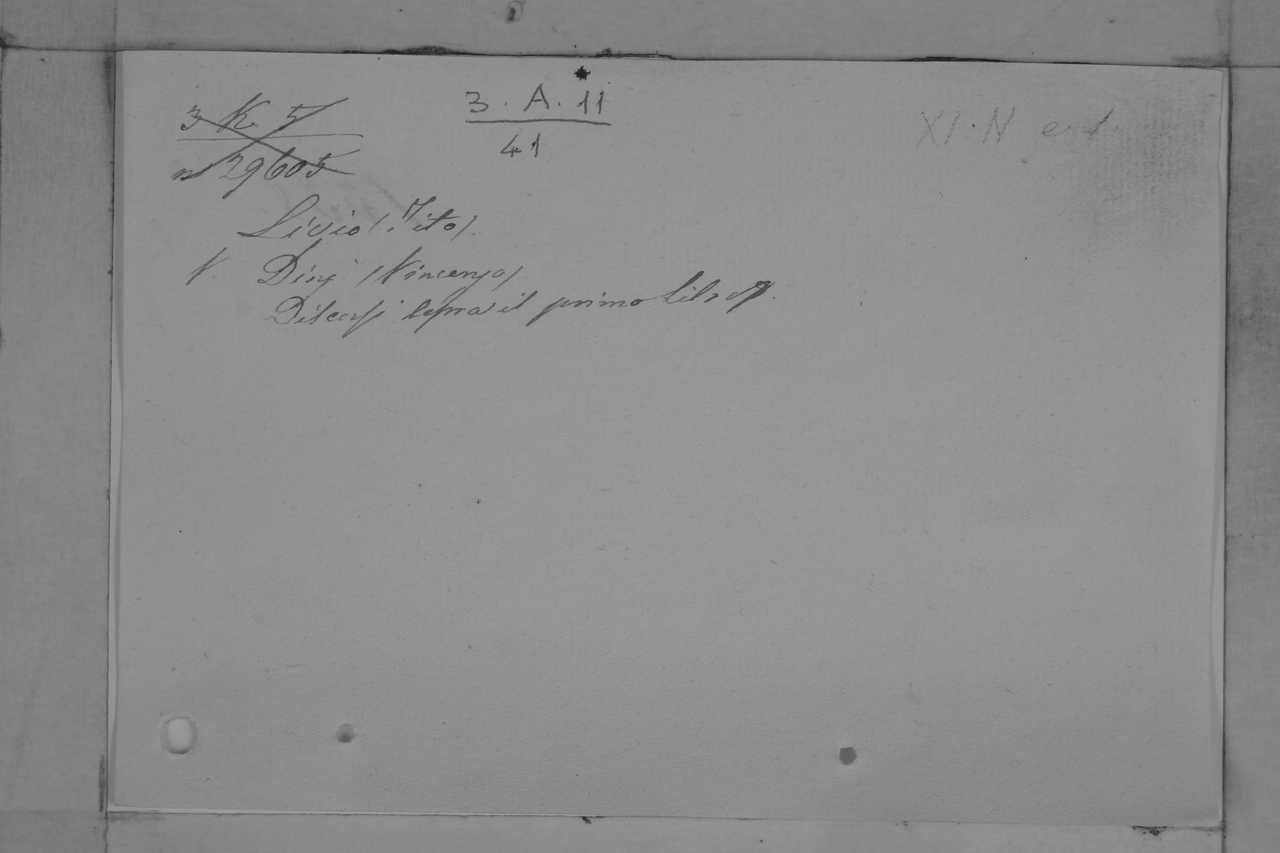 3 K. 5
n 29605
3. A. 11
41
XI. N
Livio (Tito).
V. Dini (Vincenzo)
Discorsi sopra il primo libro